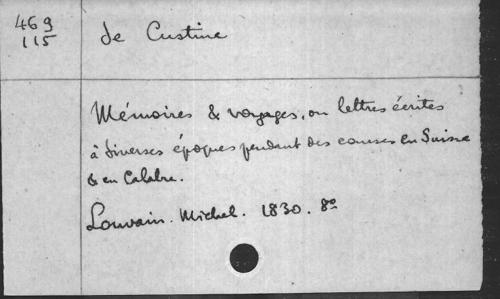 469
115
de Custine
Mémoires & voyages, ou lettres écrites
à diverses époques pendant des courses en Suisse
& en Calabre.
Louvain. Michel. 1830. 8°